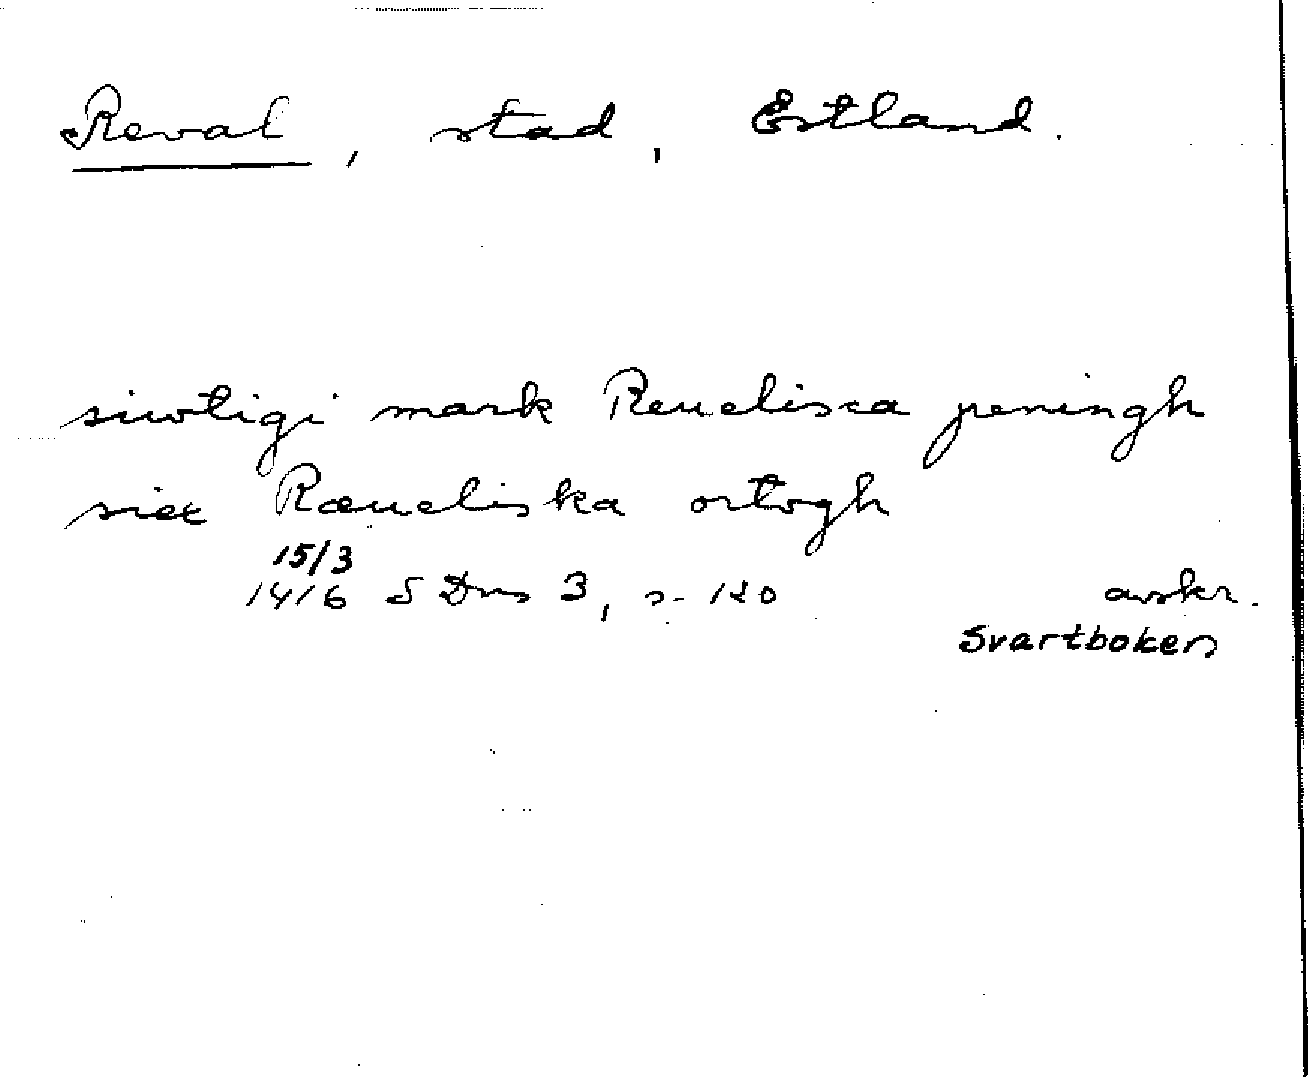 Reval, stad, Estland.
siwtigi mark Reuelisca peningh
siex Ræueliska ortogh
15/3
1416 S Dns 3, s. 120
avskr.
Svartboken